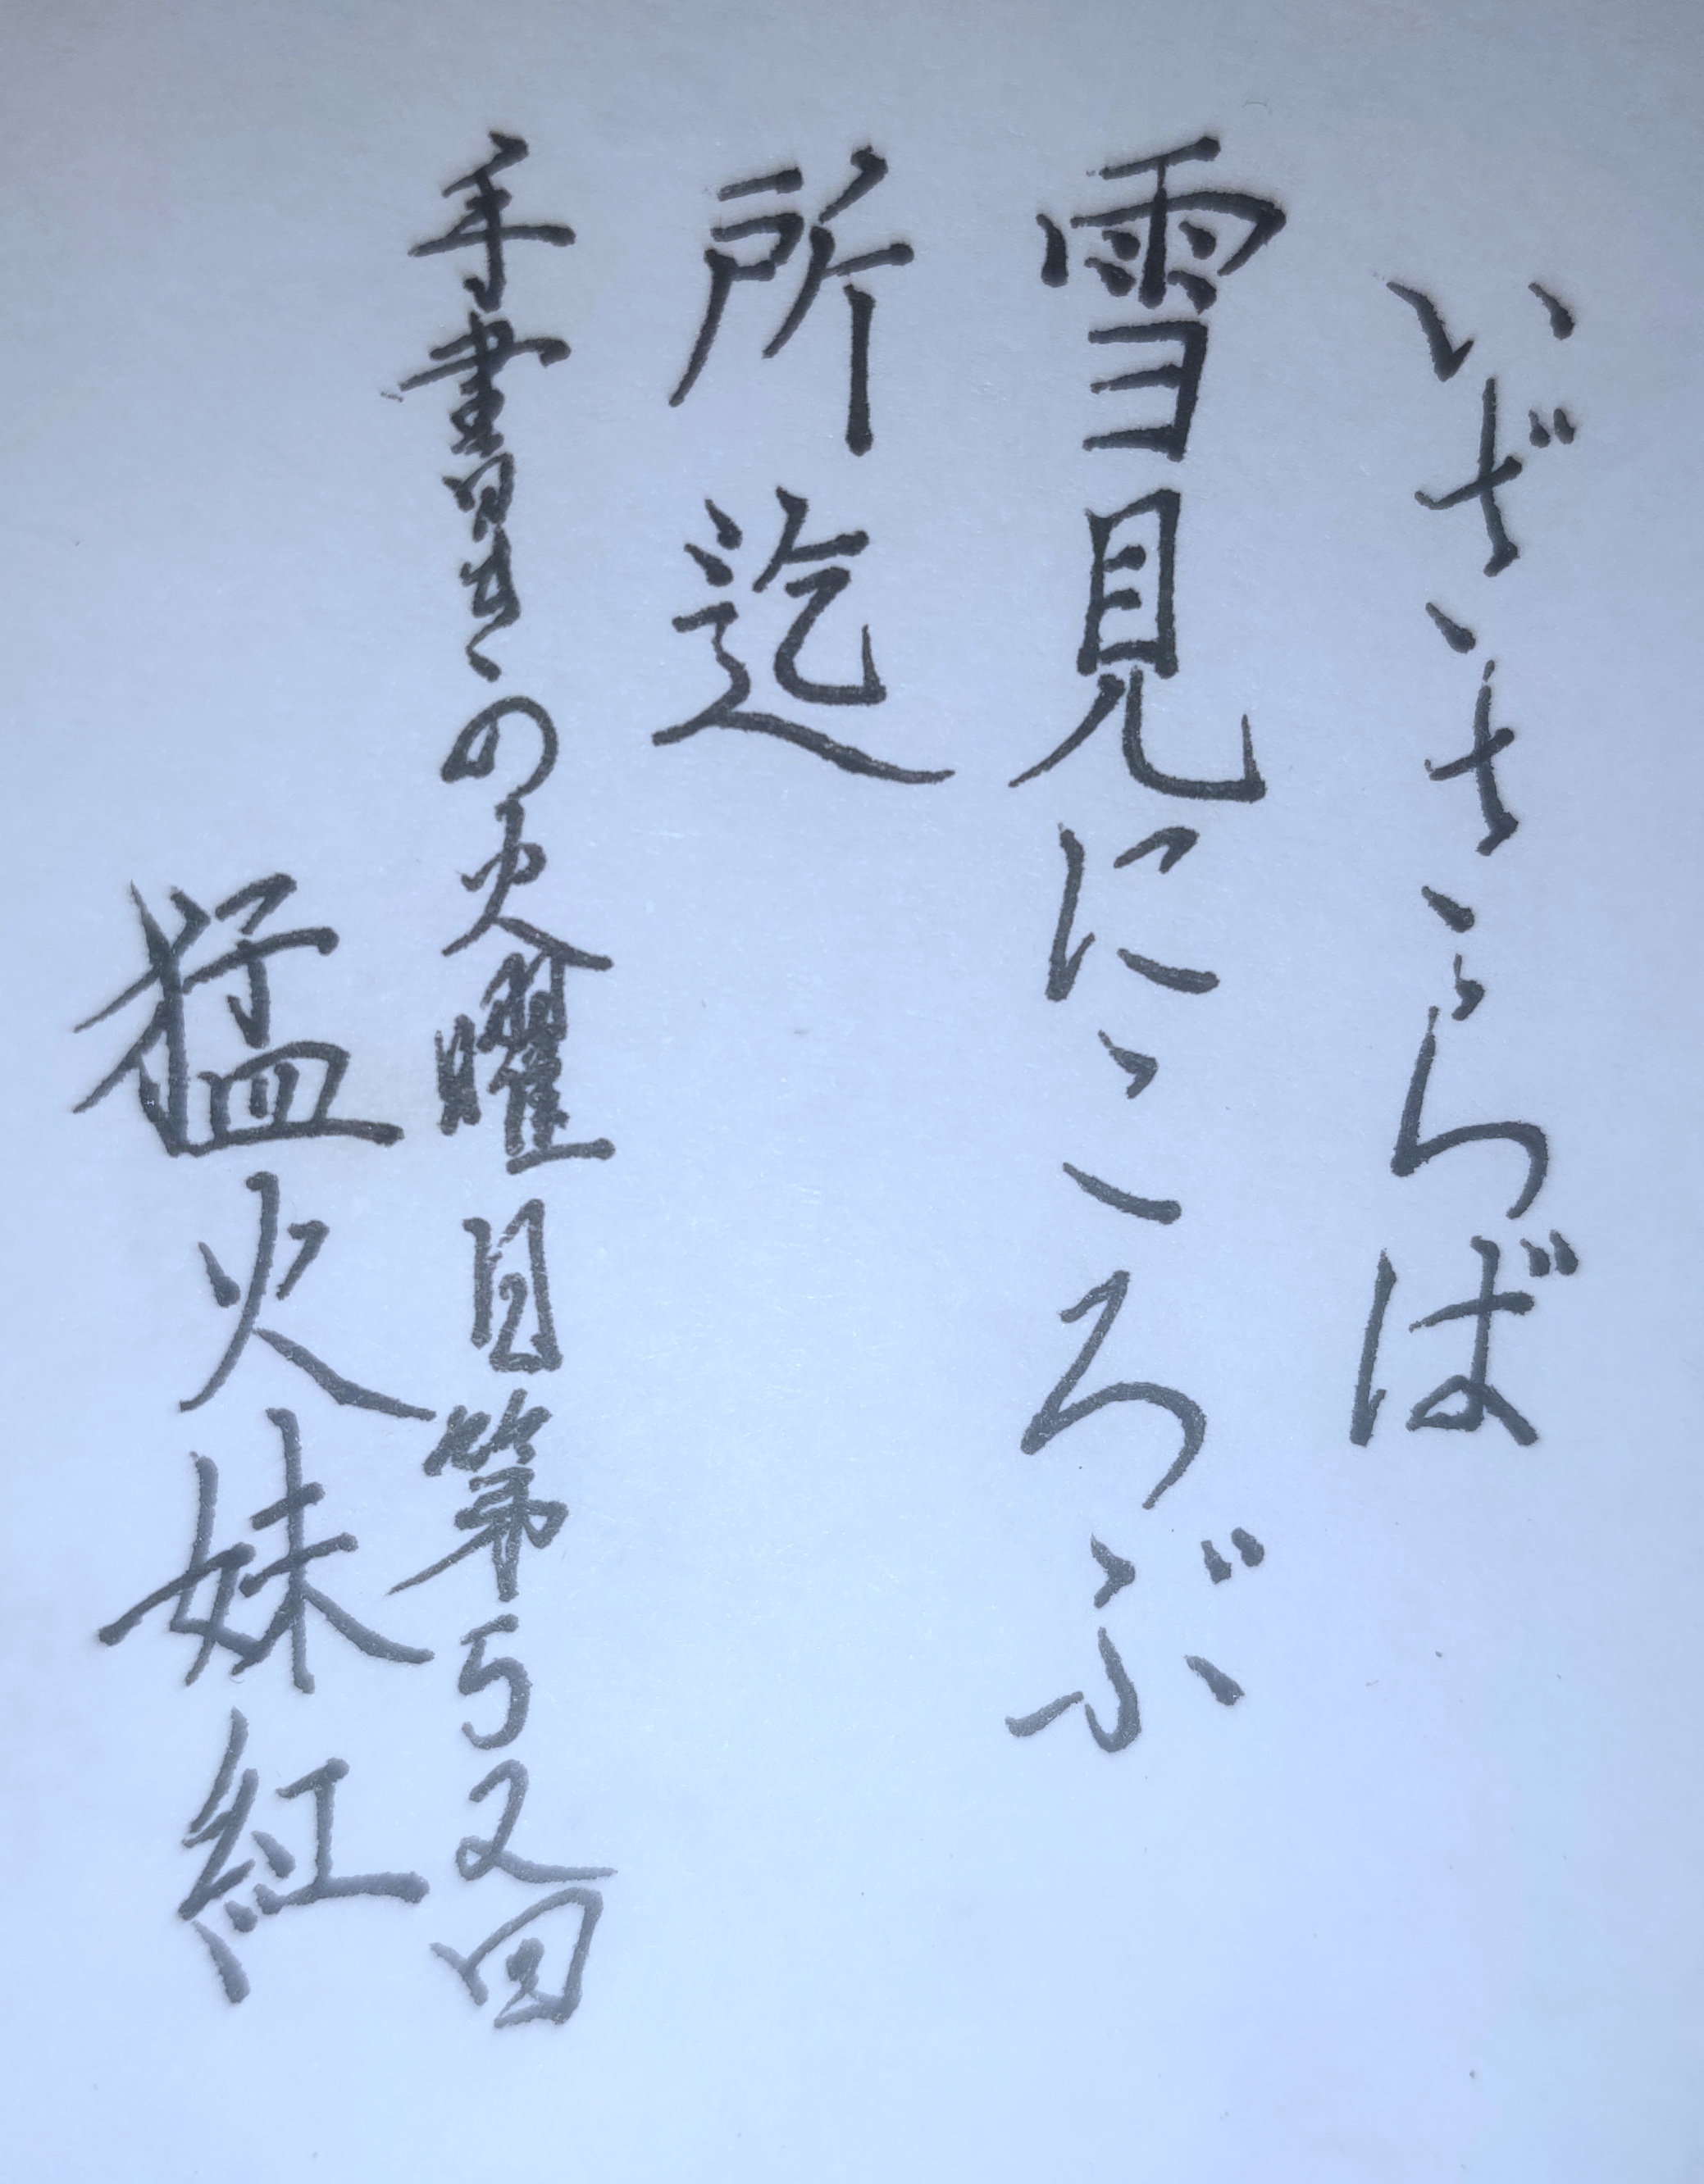 いざさらば
雪見にころぶ
所迄
手書きの火曜日第52回
猛火妹紅